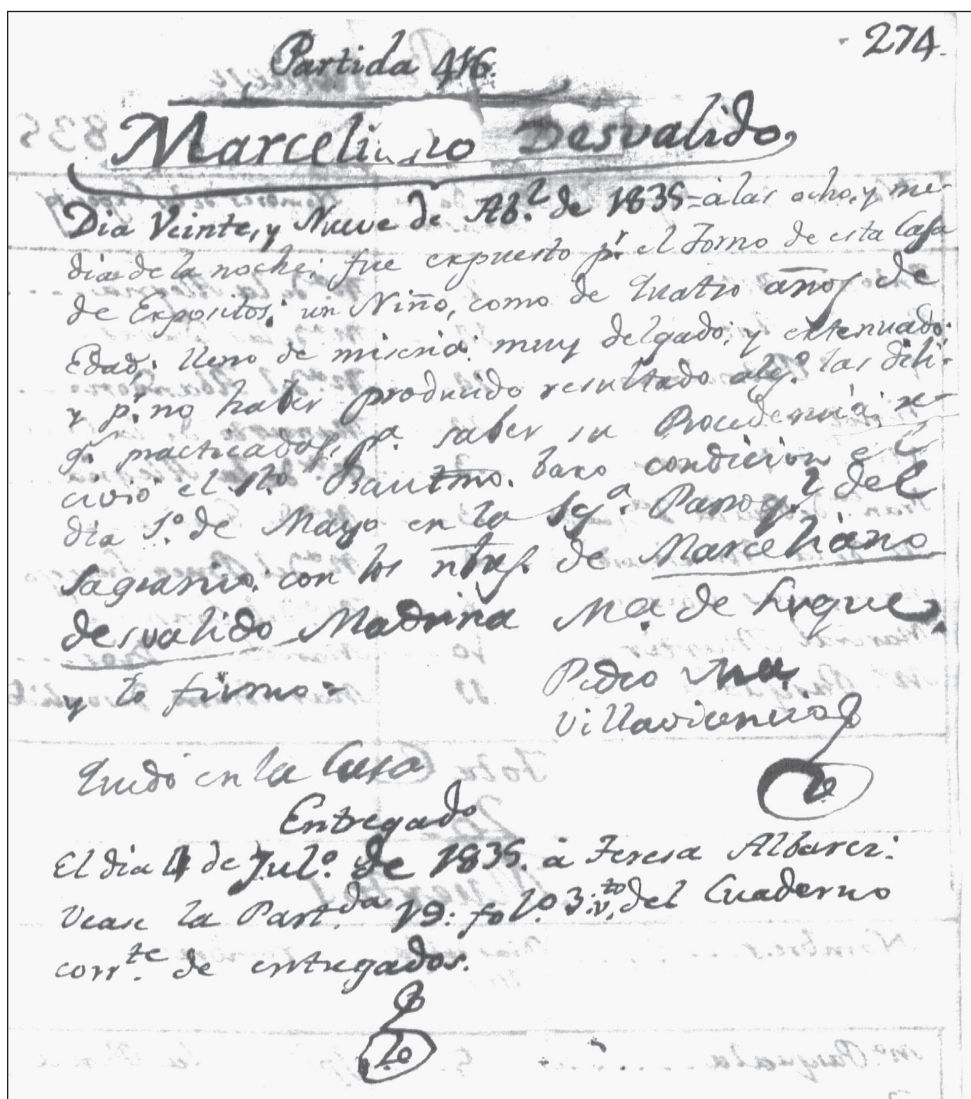 274.
Partida 416.
Marceliano Desvalido,
Dia Veinte, y Nueve de Ab.l de 1835 = a las ocho, y me-
dia de la noche; fue expuesto p.r el Torno de esta Casa
de Expositos; un Niño, como de quatro años de
Edad; lleno de miseria: muy delgado; y extenuado:
y p.r no haber producido resultado alg.o las dili-
g.s practicadas, p.a saber su Procedencia; re-
civio el S.to Bautmo. baxo condicion el
dia 1.o de Mayo en la Parroq.l del
Sagrario; con los nbres. de Marceliano
desvalido Madrina M.a de Luque,
y lo firmo =
Pedro
Villavicencio
Quedó en la Casa
Entregado
El dia 4 de Jul.o de 1835. a Teresa Albarez:
Vease la Part.da 19: fol.o 3: v.to del Cuaderno
corr.te de entregados.